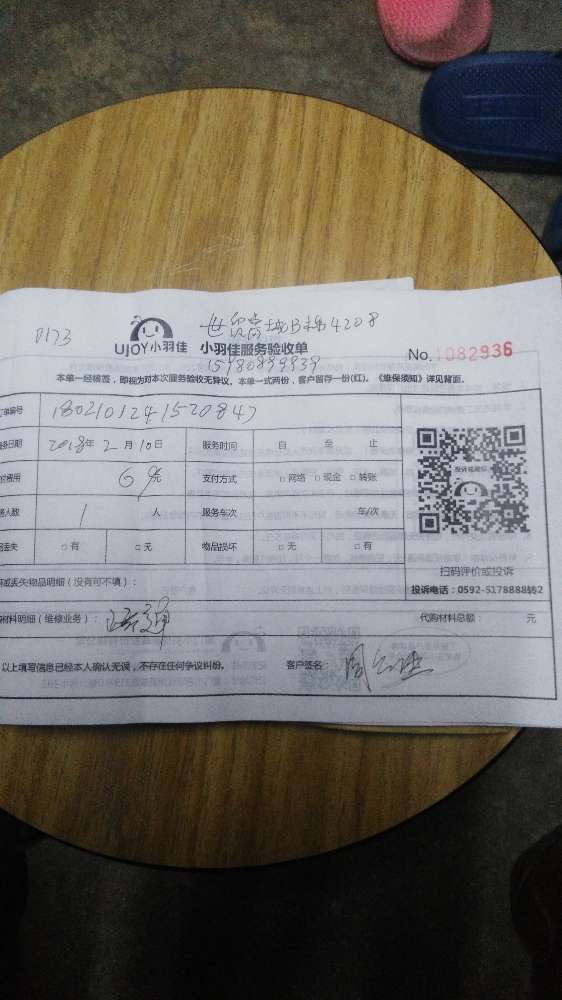 D173
世贸商城B栋4208
UJOY小羽佳 小羽佳服务验收单
15980899939
No. 1082936
本单一经核签,即视为对本次服务验收无异议。本单一式两份,客户留存一份(红)。《维保须知》详见背面。
订单编号 1802101241520847
务日期 2018年2月10日 服务时间 自 至 止
付费用 元 支付方式 □网络 □现金 □转账
务人数 1 人 服务车次 车/次
丢失 □有 □无 物品损坏 □无 □有
投诉或建议
扫码评价或投诉
投诉电话:0592-5178888转2
坏或丢失物品明细(没有可不填):
材料明细(维修业务): 代购材料总额: 元
以上填写信息已经本人确认无误,不存在任何争议纠纷。 客户签名: